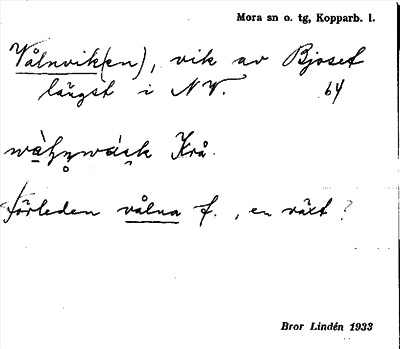 Mora sn o. tg, Kopparb. l.
Vålnvik(en), vik av Bjoset
längst i NV. 64
Krå.
förleden vålna f., en växt?
Bror Lindén 1933